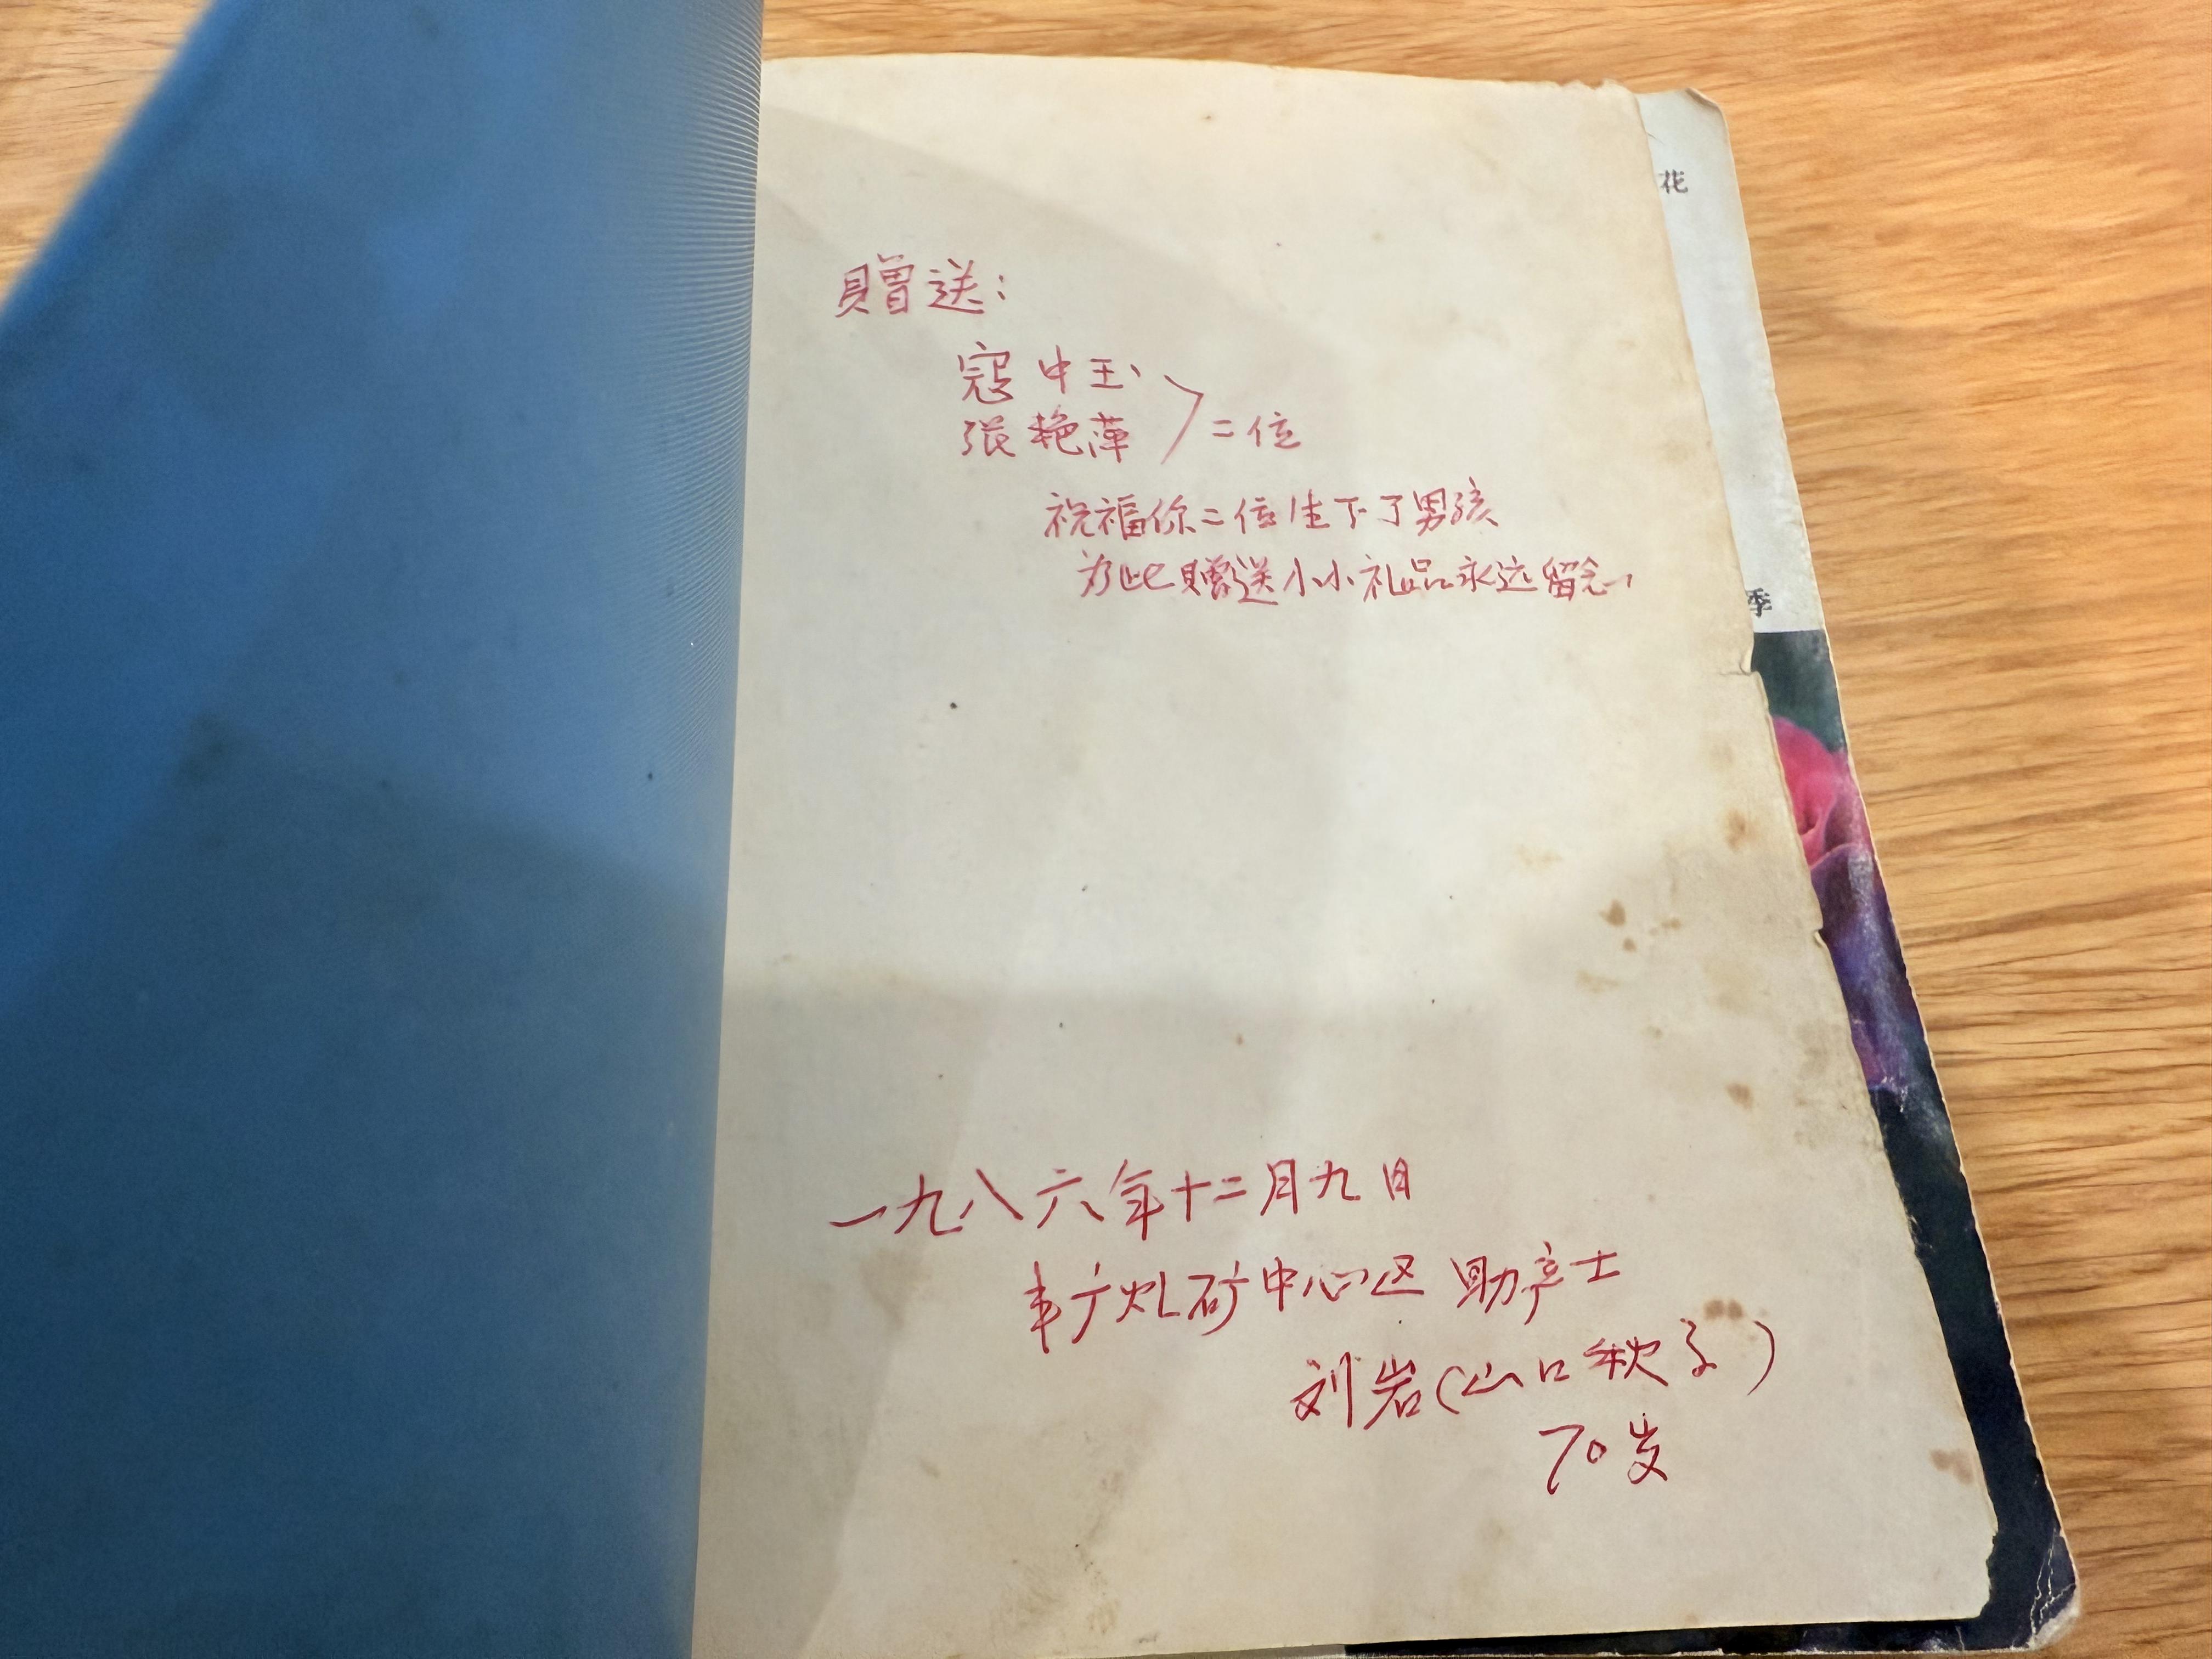 赠送：
寇中玉
张艳萍
二位
祝福你二位生下了男孩
为此赠送小小礼品永远留念
一九八六年十二月九日
丰广炕矿中心区 助产士
刘岩(山口秋子)
70岁
花
季